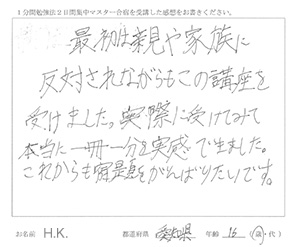 1分間勉強法2日間集中マスター合宿を受講した感想をお書きください。
最初は親や家族に
反対されながらもこの講座を
受けました。実際に受けてみて
本当に一冊一分を実感できました。
これからも宿題をがんばりたいです。
お名前 H.K. 都道府県 愛知県 年齢 16 (歳・代)